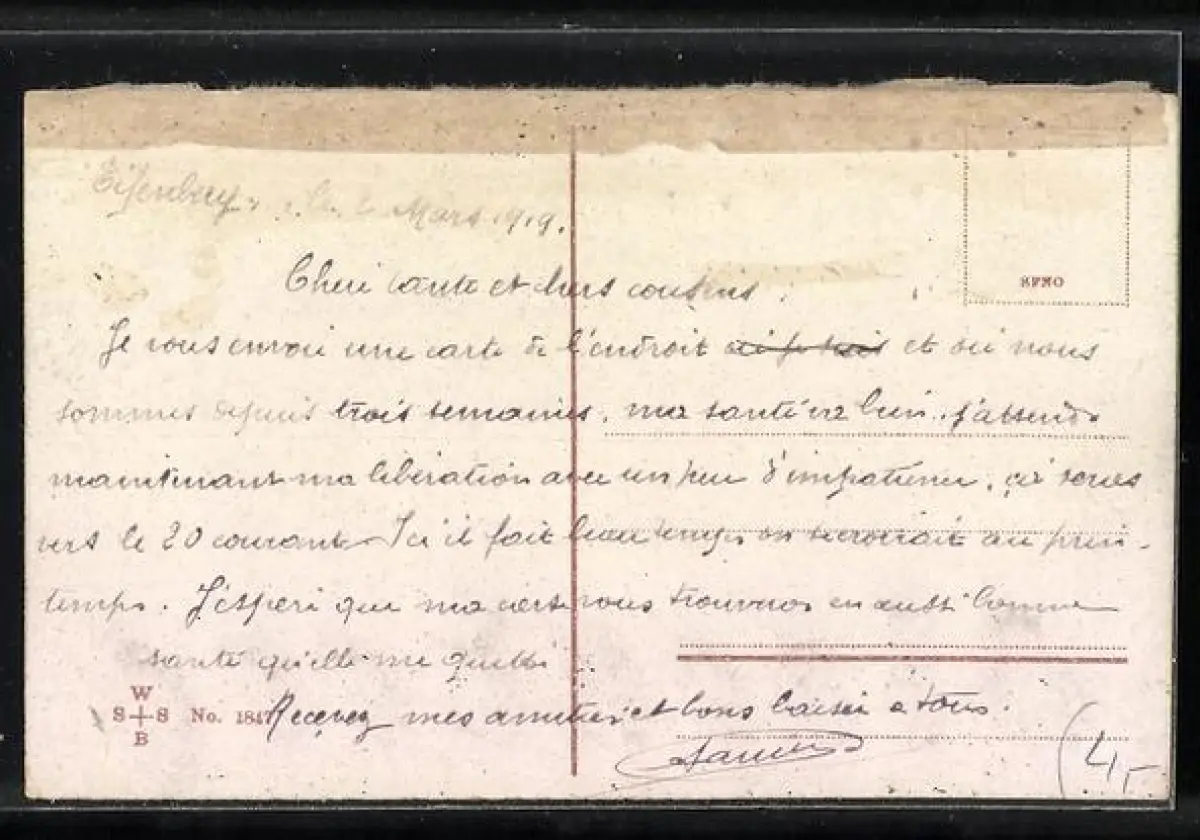 Eisenberg, le 2 Mars 1919.
SPMO
Cheri tante et chers cousins.
Je vous envoi une carte de l'endroit et où nous
sommes depuis trois semaines, ma santé va bien. j'attends
maintenant ma libération avec un peu d'impatience, ça seras
vers le 20 courant. Ici il fait beau temps on se croirait au prin-
temps. J'esperi que ma carte vous trouveras en aussi bonne
santé qu'elle me quitte
W
S S No. 1847
B
Recevez mes amitiés et bons baiser a tous.
4,-